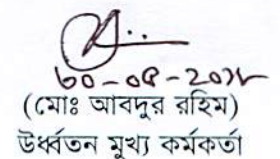 ৩০-০৪-২০১৮
(মোঃ আবদুর রহিম)
ঊর্ধ্বতন মুখ্য কর্মকর্তা